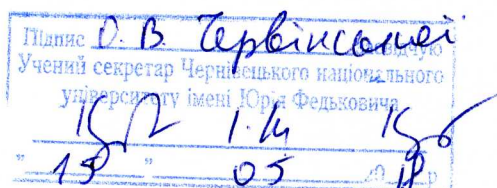 Підпис О. В. Червінської свідчую
Учений секретар Чернівецького національного
університету імені Юрія Федьковича
І. М.
"15" 05